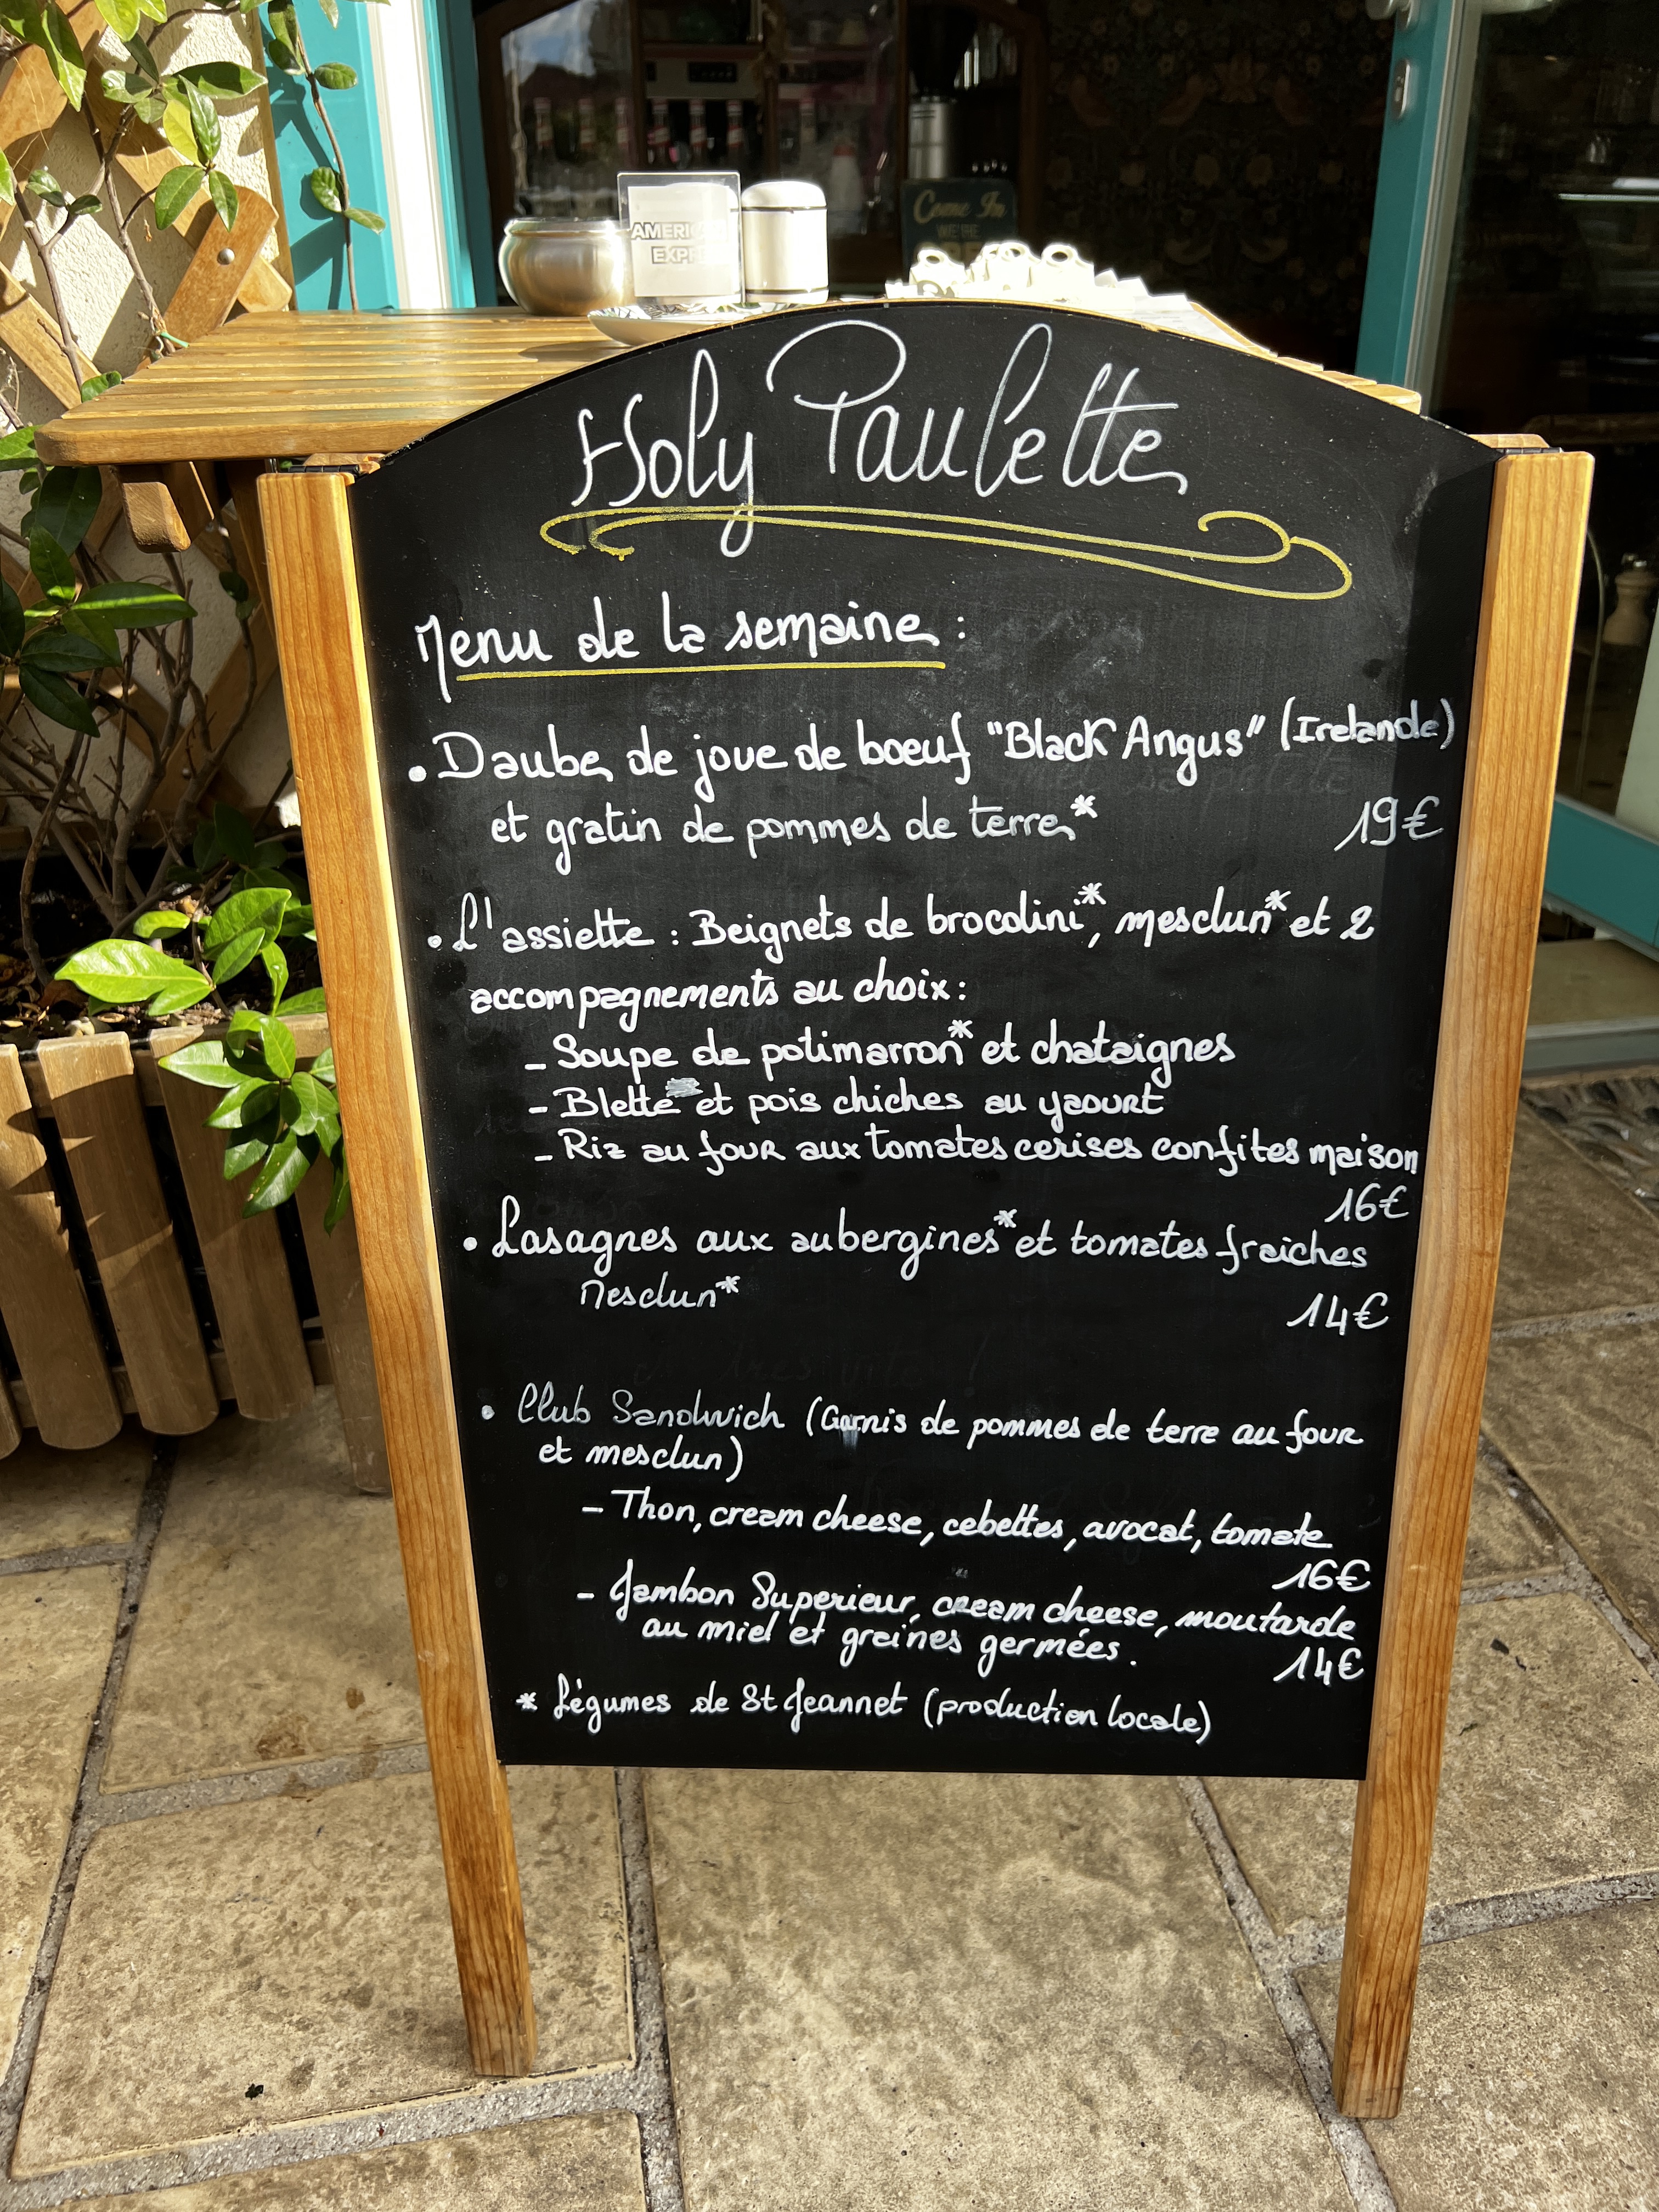 AMERIC
EXPR
Come In
WE'RE
Holy Paulette
Menu de la semaine :
• Daube de joue de boeuf "Black Angus" (Irelande)
et gratin de pommes de terre*
19€
• L'assiette : Beignets de brocolini*, mesclun* et 2
accompagnements au choix :
- Soupe de potimarron* et chataignes
- Blette et pois chiches au yaourt
- Riz au four aux tomates cerises confites maison
16€
• Lasagnes aux aubergines* et tomates fraiches
Mesclun*
14€
• Club Sandwich (Garnis de pommes de terre au four
et mesclun)
- Thon, cream cheese, cebettes, avocat, tomate
16€
- Jambon Superieur, cream cheese, moutarde
au miel et graines germées.
14€
* Légumes de St Jeannet (production locale)